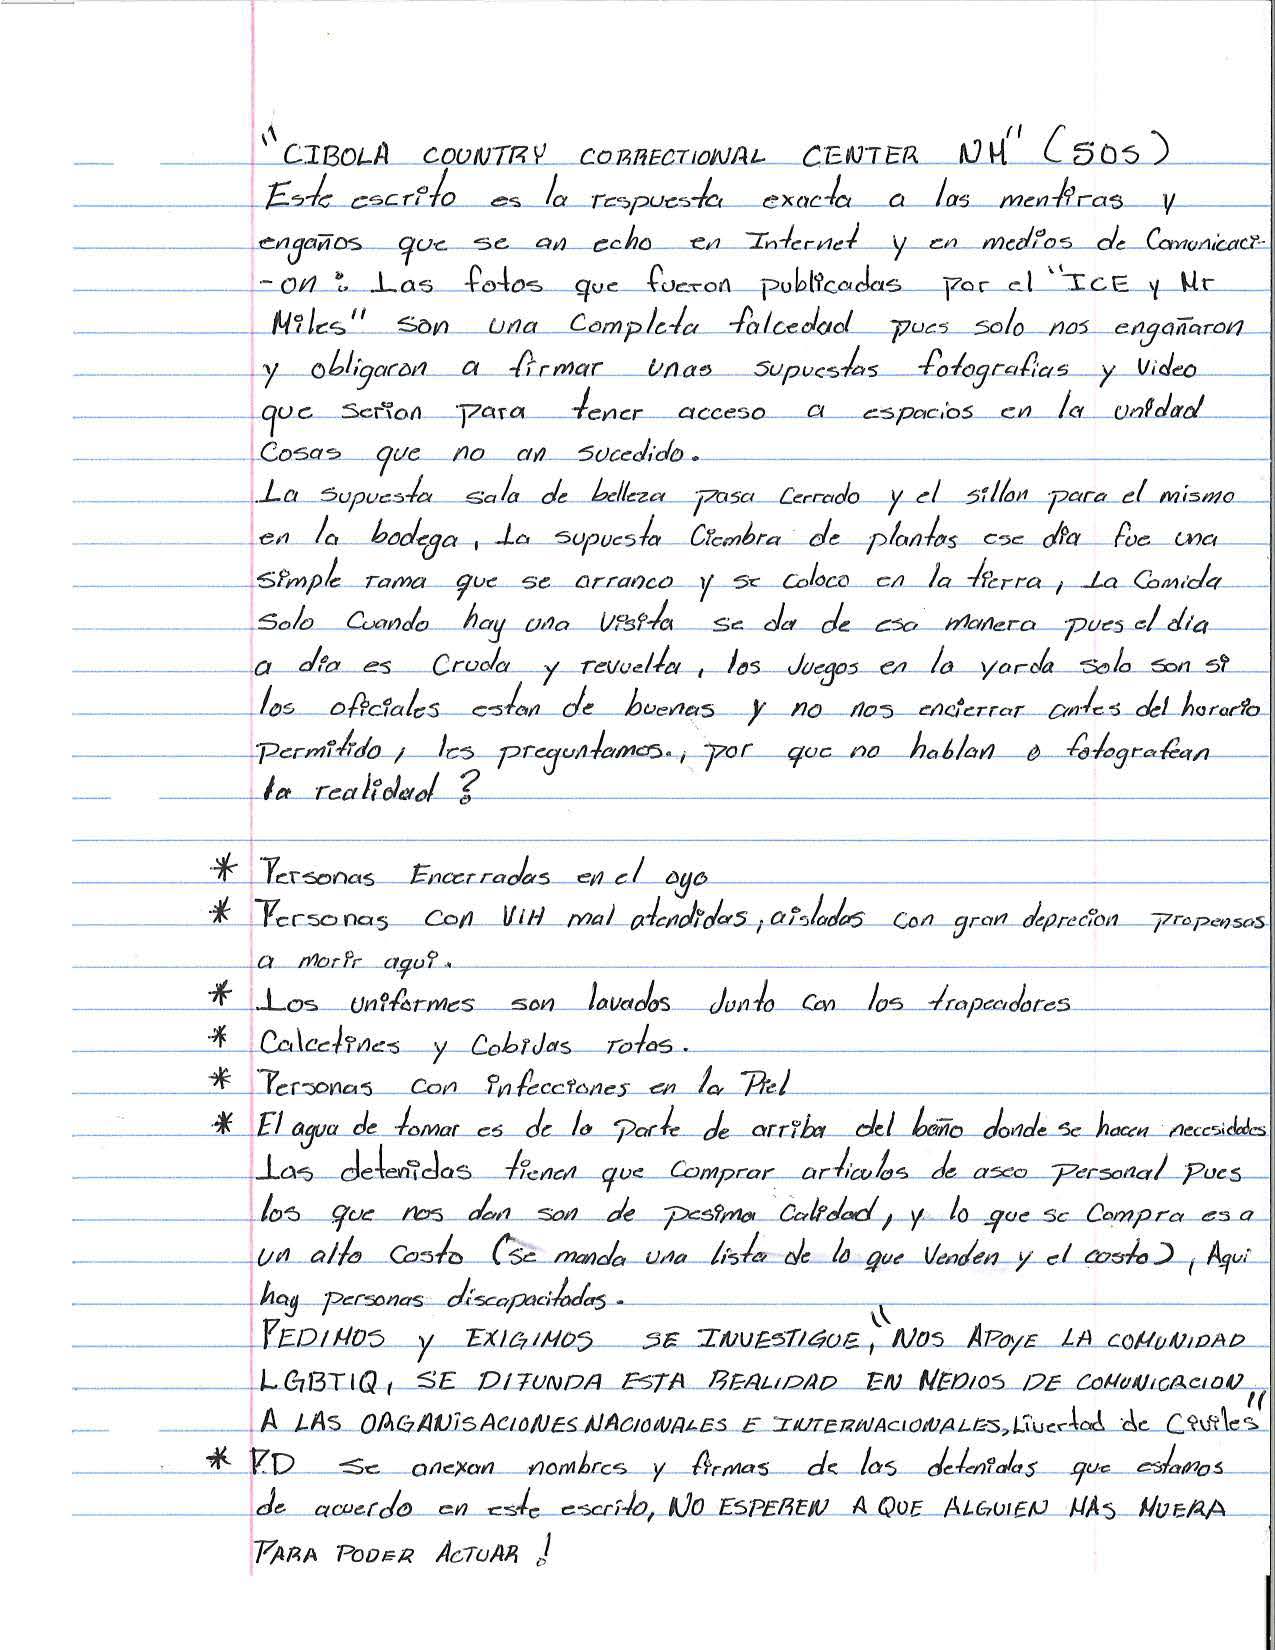 "CIBOLA COUNTRY CORRECTIONAL CENTER NM" (SOS)
Este escrito es la respuesta exacta a las mentiras y
engaños que se an echo en Internet y en medios de Comunicaci-
-on : Las fotos que fueron publicadas por el "ICE y Mr
Miles" son una Completa falcedad pues solo nos engañaron
y obligaron a firmar unas supuestas fotografias y Video
que serian para tener acceso a espacios en la unidad
Cosas que no an sucedido.
La supuesta sala de belleza pasa Cerrado y el sillon para el mismo
en la bodega, La supuesta Ciembra de plantas ese dia fue una
simple rama que se arranco y se coloco en la tierra, La Comida
Solo Cuando hay una Visita se da de esa manera pues el dia
a dia es Cruda y revuelta, los Juegos en la yarda solo son si
los oficiales estan de buenas y no nos encierrar antes del horario
Permitido, les preguntamos., por que no hablan o fotografean
la realidad?
* Personas Encerradas en el oyo
* Personas con VIH mal atendidas, aislados con gran deprecion propensas
a morir aqui.
* Los uniformes son lavados Junto con los trapeadores
* Calcetines y Cobijas rotas.
* Personas con infecciones en la Piel
* El agua de tomar es de la Parte de arriba del baño donde se hacen necesidades
Las detenidas tienen que Comprar articulos de aseo Personal Pues
los que nos dan son de pesima Calidad, y lo que se Compra es a
un alto Costo (se manda una lista de lo que Venden y el costo), Aqui
hay personas discapacitadas.
PEDIMOS y EXIGIMOS SE INVESTIGUE, "NOS APOYE LA COMUNIDAD
LGBTIQ, SE DIFUNDA ESTA REALIDAD EN MEDIOS DE COMUNICACION
A LAS ORGANISACIONES NACIONALES E INTERNACIONALES, Livertad de Civiles"
* P.D Se anexan nombres y firmas de las detenidas que estamos
de acuerdo en este escrito, NO ESPEREN A QUE ALGUIEN MAS MUERA
PARA PODER ACTUAR!